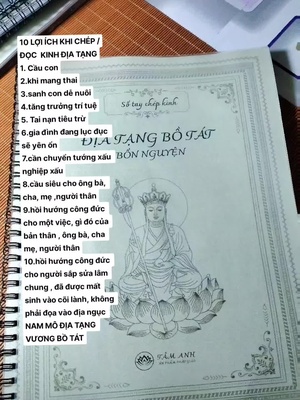 10 LỢI ÍCH KHI CHÉP /
ĐỌC KINH ĐỊA TẠNG
1. Cầu con
2.khi mang thai
3.sanh con dễ nuôi
4.tăng trưởng trí tuệ
5. Tai nạn tiêu trừ
6.gia đình đang lục đục
sẽ yên ổn
7.cần chuyển tướng xấu
nghiệp xấu
8.cầu siêu cho ông bà,
cha, mẹ ,người thân
9.hồi hướng công đức
cho một việc, gì đó của
bản thân , ông bà, cha
mẹ, người thân
10.hồi hướng công đức
cho người sắp sửa lâm
chung , đã được mất
sinh vào cõi lành, không
phải đọa vào địa ngục
NAM MÔ ĐỊA TẠNG
VƯƠNG BỒ TÁT
Sổ tay chép kinh
ĐỊA TẠNG BỒ TÁT
BỔN NGUYỆN
TÂM ANH